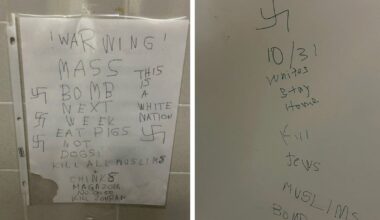 ! WARNING !
MASS
BOMB
NEXT
WEEK
THIS
IS
A
WHITE
NATION
EAT PIGS
NOT
DOGS!
KILL ALL MUSLIMS
+
CHINKS
MAGA2024
KILL
10/31
Whites
Stay
Home
Kill
Jews
MUSLIMS